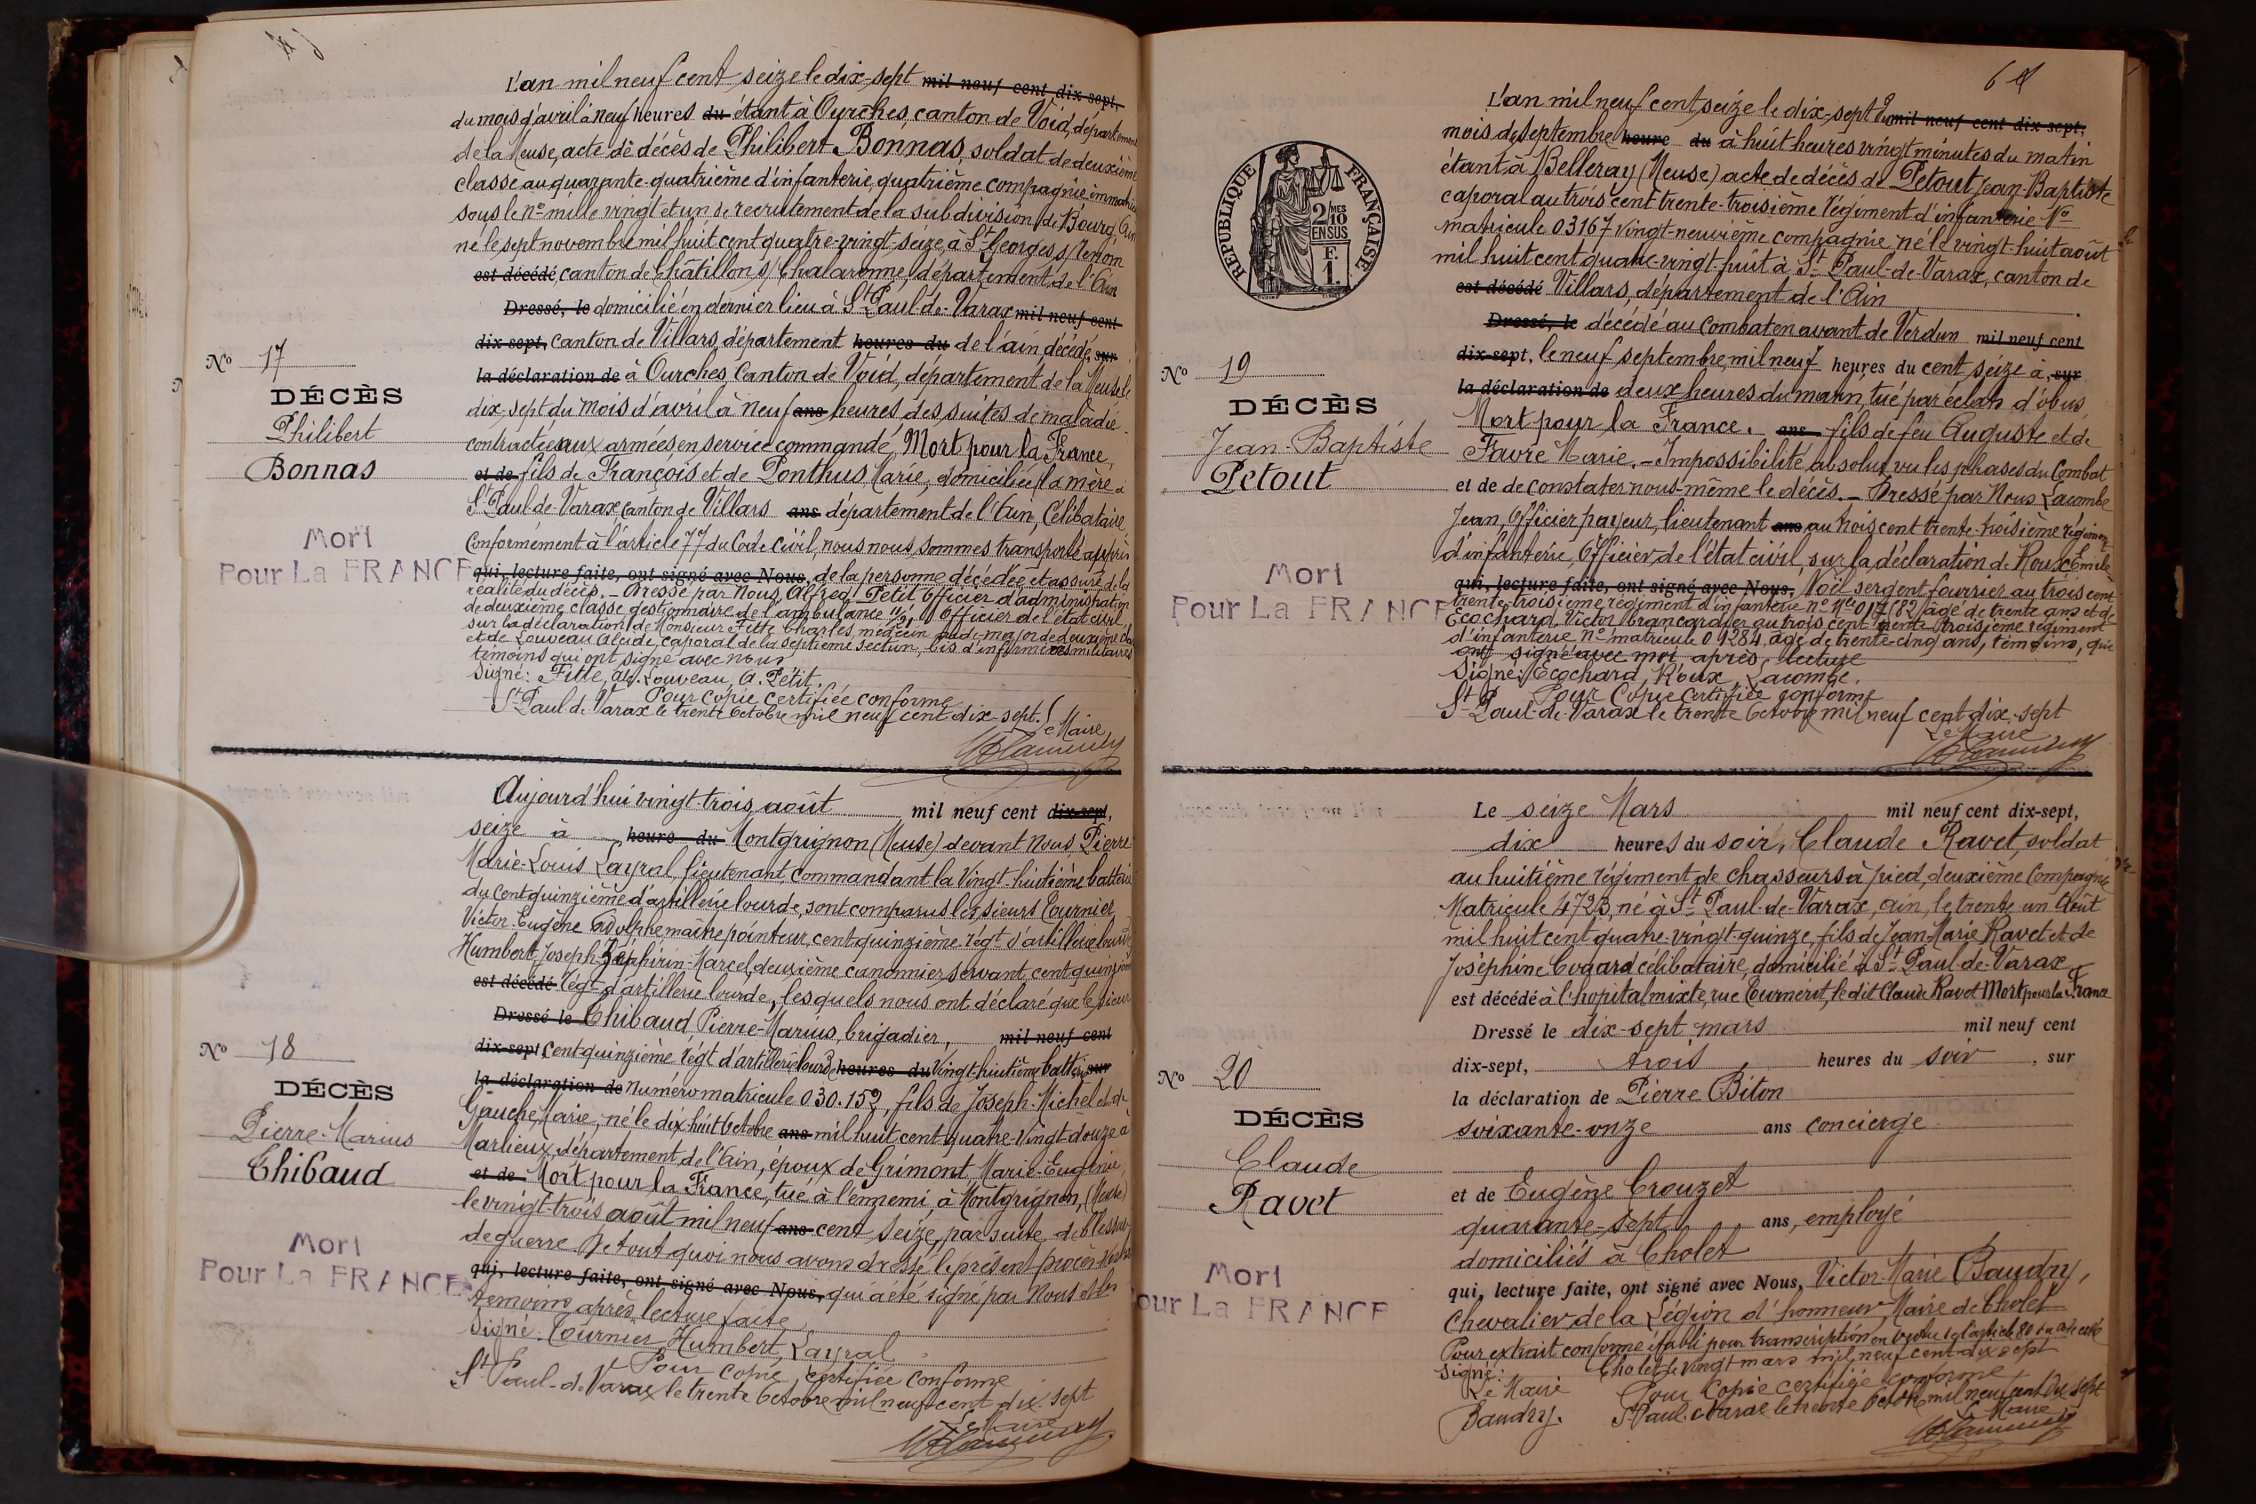 L'an mil neuf cent seize le dix-sept mil neuf cent dix-sept,
du mois d'avril à neuf heures du étant à Ourches, canton de Void, département
de la Meuse, acte de décès de Philibert Bonnas, soldat de deuxième
classe au quarante-quatrième d'infanterie, quatrième compagnie immatriculé
sous le no mille vingt et un de recrutement de la subdivision de Bourg, Ain
né le sept novembre mil huit cent quatre-vingt-seize, à St Georges s/ Renom
est décédé, canton de Châtillon s/ Chalaronne, département de l'Ain
Dressé, le domicilié en dernier lieu à St Paul-de-Varax mil neuf cent
dix-sept, canton de Villars, département heures du de l'ain, décédé, sur
la déclaration de à Ourches, Canton de Void, département de la Meuse le
No 17
dix-sept du mois d'avril à neuf ans heures, des suites de maladie
DÉCÈS
Philibert
Bonnas
contractée aux armées, en service commandé, Mort pour la France,
et de fils de François et de Ponthus Marie, domiciliée la mère à
St Paul-de-Varax canton de Villars ans département de l'Ain, Célibataire
Conformément à l'article 77 du Code civil, nous nous sommes transporté auprès
Mort
Pour La FRANCE
qui, lecture faite, ont signé avec Nous, de la personne décédée et assuré de la
réalité du décès. — Dressé par Nous, Alfred Petit, Officier d'administration
de deuxième classe gestionnaire de l'ambulance 11/21 Officier de l'état civil,
sur la déclaration de Monsieur Fitte Charles, médecin aide-major de deuxième classe
et de Louveau Alcide, caporal de la septième section, bis d'infirmiers militaires
témoins qui ont signé avec nous
Signé: Fitte, Al. Louveau, A. Petit.
Pour copie certifiée conforme
St Paul-de-Varax le trente Octobre mil neuf cent dix-sept. Le Maire
Aujourd'hui vingt-trois août mil neuf cent dix-sept,
seize à heure du Montgrignon (Meuse) devant nous Pierre
Marie-Louis Layral, lieutenant, commandant la vingt-huitième batterie
du cent quinzième d'artillerie lourde, sont comparus les sieurs Tournier
Victor-Eugène Adolphe maître pointeur, cent quinzième régt d'artillerie lourde
Humbert, Joseph-Zéphirin-Marcel, deuxième canonnier, servant, cent quinzième
est décédé régt d'artillerie lourde, lesquels nous ont déclaré que le sieur
Dressé le Thibaud, Pierre-Marius, brigadier, mil neuf cent
No 18
dix-sept cent quinzième régt d'artillerie lourde heures du vingt-huitième batterie, sur
DÉCÈS
Pierre-Marius
Thibaud
la déclaration de numéro matricule 030.152, fils de Joseph-Michel et de
Gauche, Marie, né le dix-huit Octobre ans mil huit cent quatre-vingt-douze à
Marlieux, département de l'Ain, époux de Grimont, Marie-Eugénie,
et de Mort pour la France, tué à l'ennemi, à Montgrignon, (Meuse)
le vingt-trois août mil neuf ans cent seize, par suite de blessures
de guerre. De tout quoi nous avons dressé le présent procès-verbal
Mort
Pour La FRANCE
qui, lecture faite, ont signé avec Nous, qui a été signé par Nous et les
témoins après lecture faite
Signé: Tournier, Humbert, Layral
Pour copie certifiée conforme
St Paul-de-Varax le trente Octobre mil neuf cent dix-sept
Le Maire
6
L'an mil neuf cent seize le dix-sept du mil neuf cent dix-sept,
mois de septembre heure du à huit heures vingt minutes du matin
étant à Belleray (Meuse) acte de décès de Petout Jean-Baptiste
caporal au trois cent trente-troisième régiment d'infanterie No
matricule 03167 vingt-neuvième compagnie, né le vingt-huit août
mil huit cent quatre-vingt-huit à St Paul-de-Varax, canton de
est décédé Villars, département de l'Ain
RÉPUBLIQUE FRANÇAISE
2 MES 10 EN SUS
F. 1.
Dressé, le décédé au combat en avant de Verdun mil neuf cent
dix-sept, le neuf septembre, mil neuf heures du cent seize à, sur
No 19
DÉCÈS
Jean-Baptiste
Petout
la déclaration de deux heures du matin, tué par éclats d'obus
Mort pour la France. ans fils de feu Auguste et de
Favre Marie. — Impossibilité absolue, vu les phases du Combat
et de de constater nous-même le décès. — Dressé par Nous Lacombe
Jean, Officier payeur, lieutenant ans au trois cent trente-troisième régiment
d'infanterie, Officier de l'état civil, sur la déclaration de Roux Emile
Mort
Pour La FRANCE
qui, lecture faite, ont signé avec Nous, Noël sergent fourrier au trois cent
trente-troisième régiment d'infanterie no Mle 017182, âgé de trente ans et de
Ecochard, Victor, brancardier au trois cent trente-troisième régiment
d'infanterie no matricule 01284, âgé de trente-cinq ans, témoins, qui
ont signé avec moi, après lecture
Signé: Ecochard, Roux, Lacombe.
Pour Copie Certifiée conforme
St Paul-de-Varax le trente Octobre mil neuf cent dix-sept
Le Maire
Le seize Mars mil neuf cent dix-sept,
dix heures du soir, Claude Ravet, soldat
au huitième régiment de chasseurs à pied, deuxième Compagnie
Matricule 4723, né à St Paul-de-Varax, ain, le trente un Août
mil huit cent quatre-vingt-quinze, fils de Jean-Marie Ravet et de
Joséphine Cogard célibataire, domicilié à St Paul-de-Varax
est décédé à l'hopital mixte, rue Tournerit, le dit Claude Ravet Mort pour la France
Dressé le dix-sept mars mil neuf cent
dix-sept, trois heures du soir, sur
No 20
DÉCÈS
Claude
Ravet
la déclaration de Pierre Biton
soixante-onze ans concierge
et de Eugène Crouzet
quarante-sept ans, employé
domiciliés à Cholet
Mort
our La FRANCE
qui, lecture faite, ont signé avec Nous, Victor-Marie Baudry,
Chevalier de la Légion d'honneur, Maire de Cholet
Pour extrait conforme établi pour transcription en vertu de l'article 80 du code civil
Signé: Cholet le vingt mars mil neuf cent dix-sept
Le Maire Pour Copie certifiée conforme
Baudry. St Paul-de-Varax le trente Octobre mil neuf cent dix-sept
Le Maire